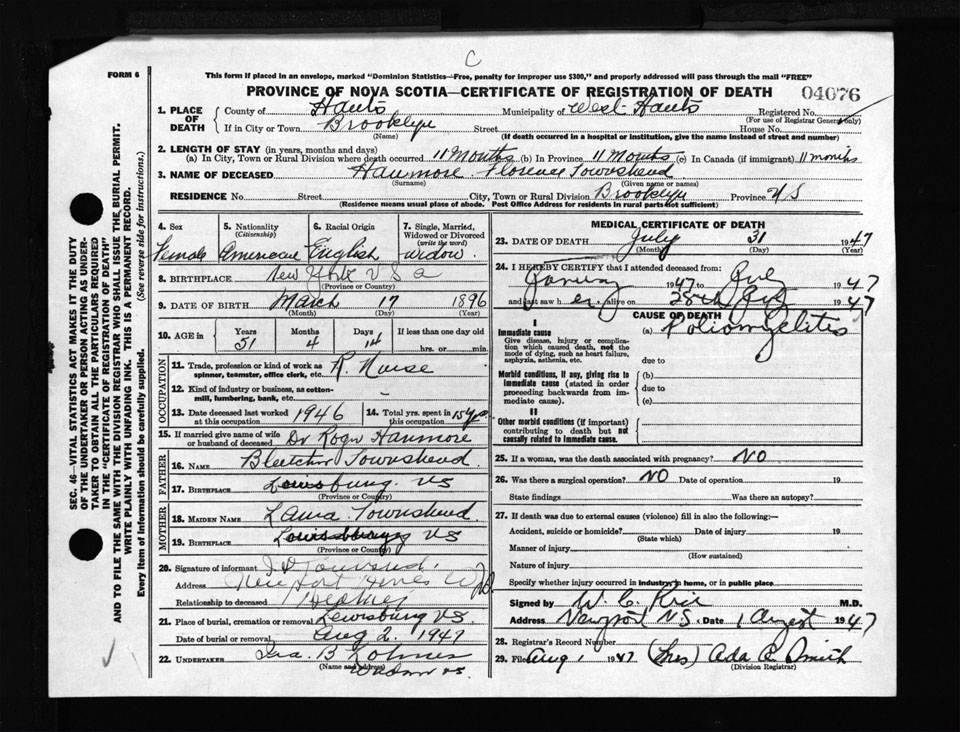 C
FORM 6
This form if placed in an envelope, marked "Dominion Statistics—Free, penalty for improper use $300," and properly addressed will pass through the mail "FREE"
PROVINCE OF NOVA SCOTIA—CERTIFICATE OF REGISTRATION OF DEATH
04076
1. PLACE OF DEATH
County of Hants Municipality of West Hants Registered No.
(For use of Registrar General only)
If in City or Town Brooklyn Street House No.
(Name) (If death occurred in a hospital or institution, give the name instead of street and number)
2. LENGTH OF STAY (in years, months and days)
(a) In City, Town or Rural Division where death occurred 11 Months (b) In Province 11 Months (c) In Canada (if immigrant) 11 months
3. NAME OF DECEASED Hanmore Florence Townshend
(Surname) (Given name or names)
RESIDENCE No. Street City, Town or Rural Division Brooklyn Province NS
(Residence means usual place of abode. Post Office Address for residents in rural parts not sufficient)
4. Sex
Female
5. Nationality
(Citizenship)
American
6. Racial Origin
English
7. Single, Married, Widowed or Divorced
(write the word)
Widow
8. BIRTHPLACE New York U S a
(Province or Country)
9. DATE OF BIRTH March 17 1896
(Month) (Day) (Year)
10. AGE in Years Months Days If less than one day old
51 4 14 hrs. or min.
OCCUPATION
11. Trade, profession or kind of work as R. Nurse
spinner, teamster, office clerk, etc.
12. Kind of industry or business, as cotton-
mill, lumbering, bank, etc.
13. Date deceased last worked at this occupation 1946
14. Total yrs. spent in this occupation 15 yrs
15. If married give name of wife or husband of deceased Dr Roger Hanmore
FATHER
16. NAME Townshend
17. BIRTHPLACE NS
(Province or Country)
MOTHER
18. MAIDEN NAME Laura Townshend
19. BIRTHPLACE NS
(Province or Country)
20. Signature of informant
Address
Relationship to deceased
21. Place of burial, cremation or removal NS
Date of burial or removal Aug 2. 1947
22. UNDERTAKER Ira. B
(Name and address)
MEDICAL CERTIFICATE OF DEATH
23. DATE OF DEATH July 31 1947
(Month) (Day) (Year)
24. I HEREBY CERTIFY that I attended deceased from:
1947 to 1947
and last saw her alive on 28th 1947
CAUSE OF DEATH
I
Immediate cause (a) Poliomyelitis
Give disease, injury or complication which caused death, not the mode of dying, such as heart failure, asphyxia, asthenia, etc.
due to
Morbid conditions, if any, giving rise to immediate cause (stated in order proceeding backwards from immediate cause).
(b)
due to
(c)
II
Other morbid conditions (if important) contributing to death but not causally related to immediate cause.
25. If a woman, was the death associated with pregnancy? NO
26. Was there a surgical operation? NO Date of operation 19
State findings Was there an autopsy?
27. If death was due to external causes (violence) fill in also the following:—
Accident, suicide or homicide? Date of injury 19
(State which)
Manner of injury
(How sustained)
Nature of injury
Specify whether injury occurred in industry, in home, or in public place
Signed by M.D.
Address Newport N.S. Date 1 August 1947
28. Registrar's Record Number
29. Filed Aug 1 1947 (Mrs) Ada Smith
(Division Registrar)
SEC. 46—VITAL STATISTICS ACT MAKES IT THE DUTY OF THE UNDERTAKER OR PERSON ACTING AS UNDERTAKER TO OBTAIN ALL THE PARTICULARS REQUIRED IN THE "CERTIFICATE OF REGISTRATION OF DEATH" AND TO FILE THE SAME WITH THE DIVISION REGISTRAR WHO SHALL ISSUE THE BURIAL PERMIT.
WRITE PLAINLY WITH UNFADING INK. THIS IS A PERMANENT RECORD.
Every item of information should be carefully supplied. (See reverse side for instructions.)